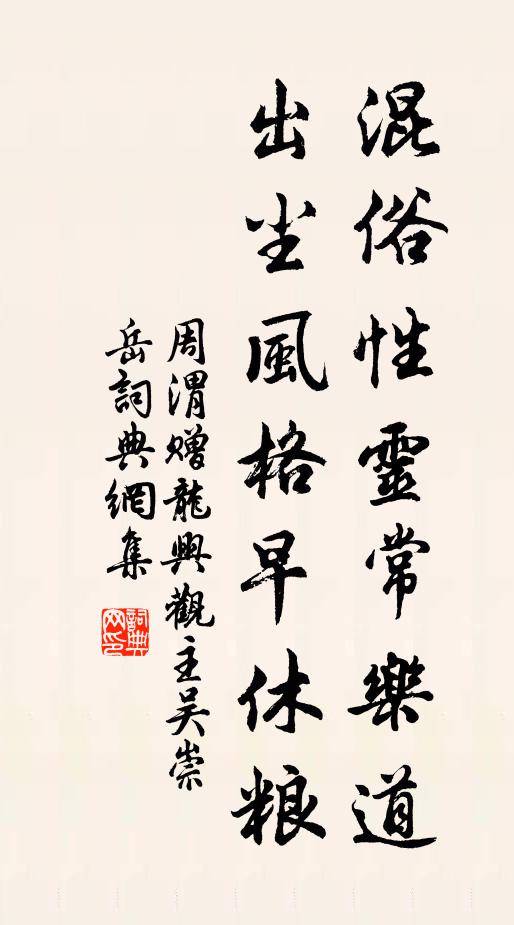 混俗性靈常樂道
出尘風格早休粮
周渭贈龍興觀主吳崇
岳詞典網集
詞典網印